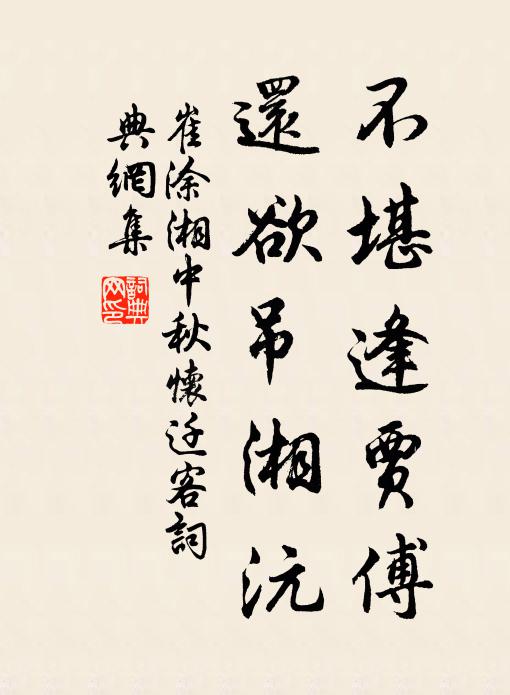 不堪逢賈傅
還欲吊湘沅
崔涂湘中秋懷迁客詞
典網集
詞典
网印